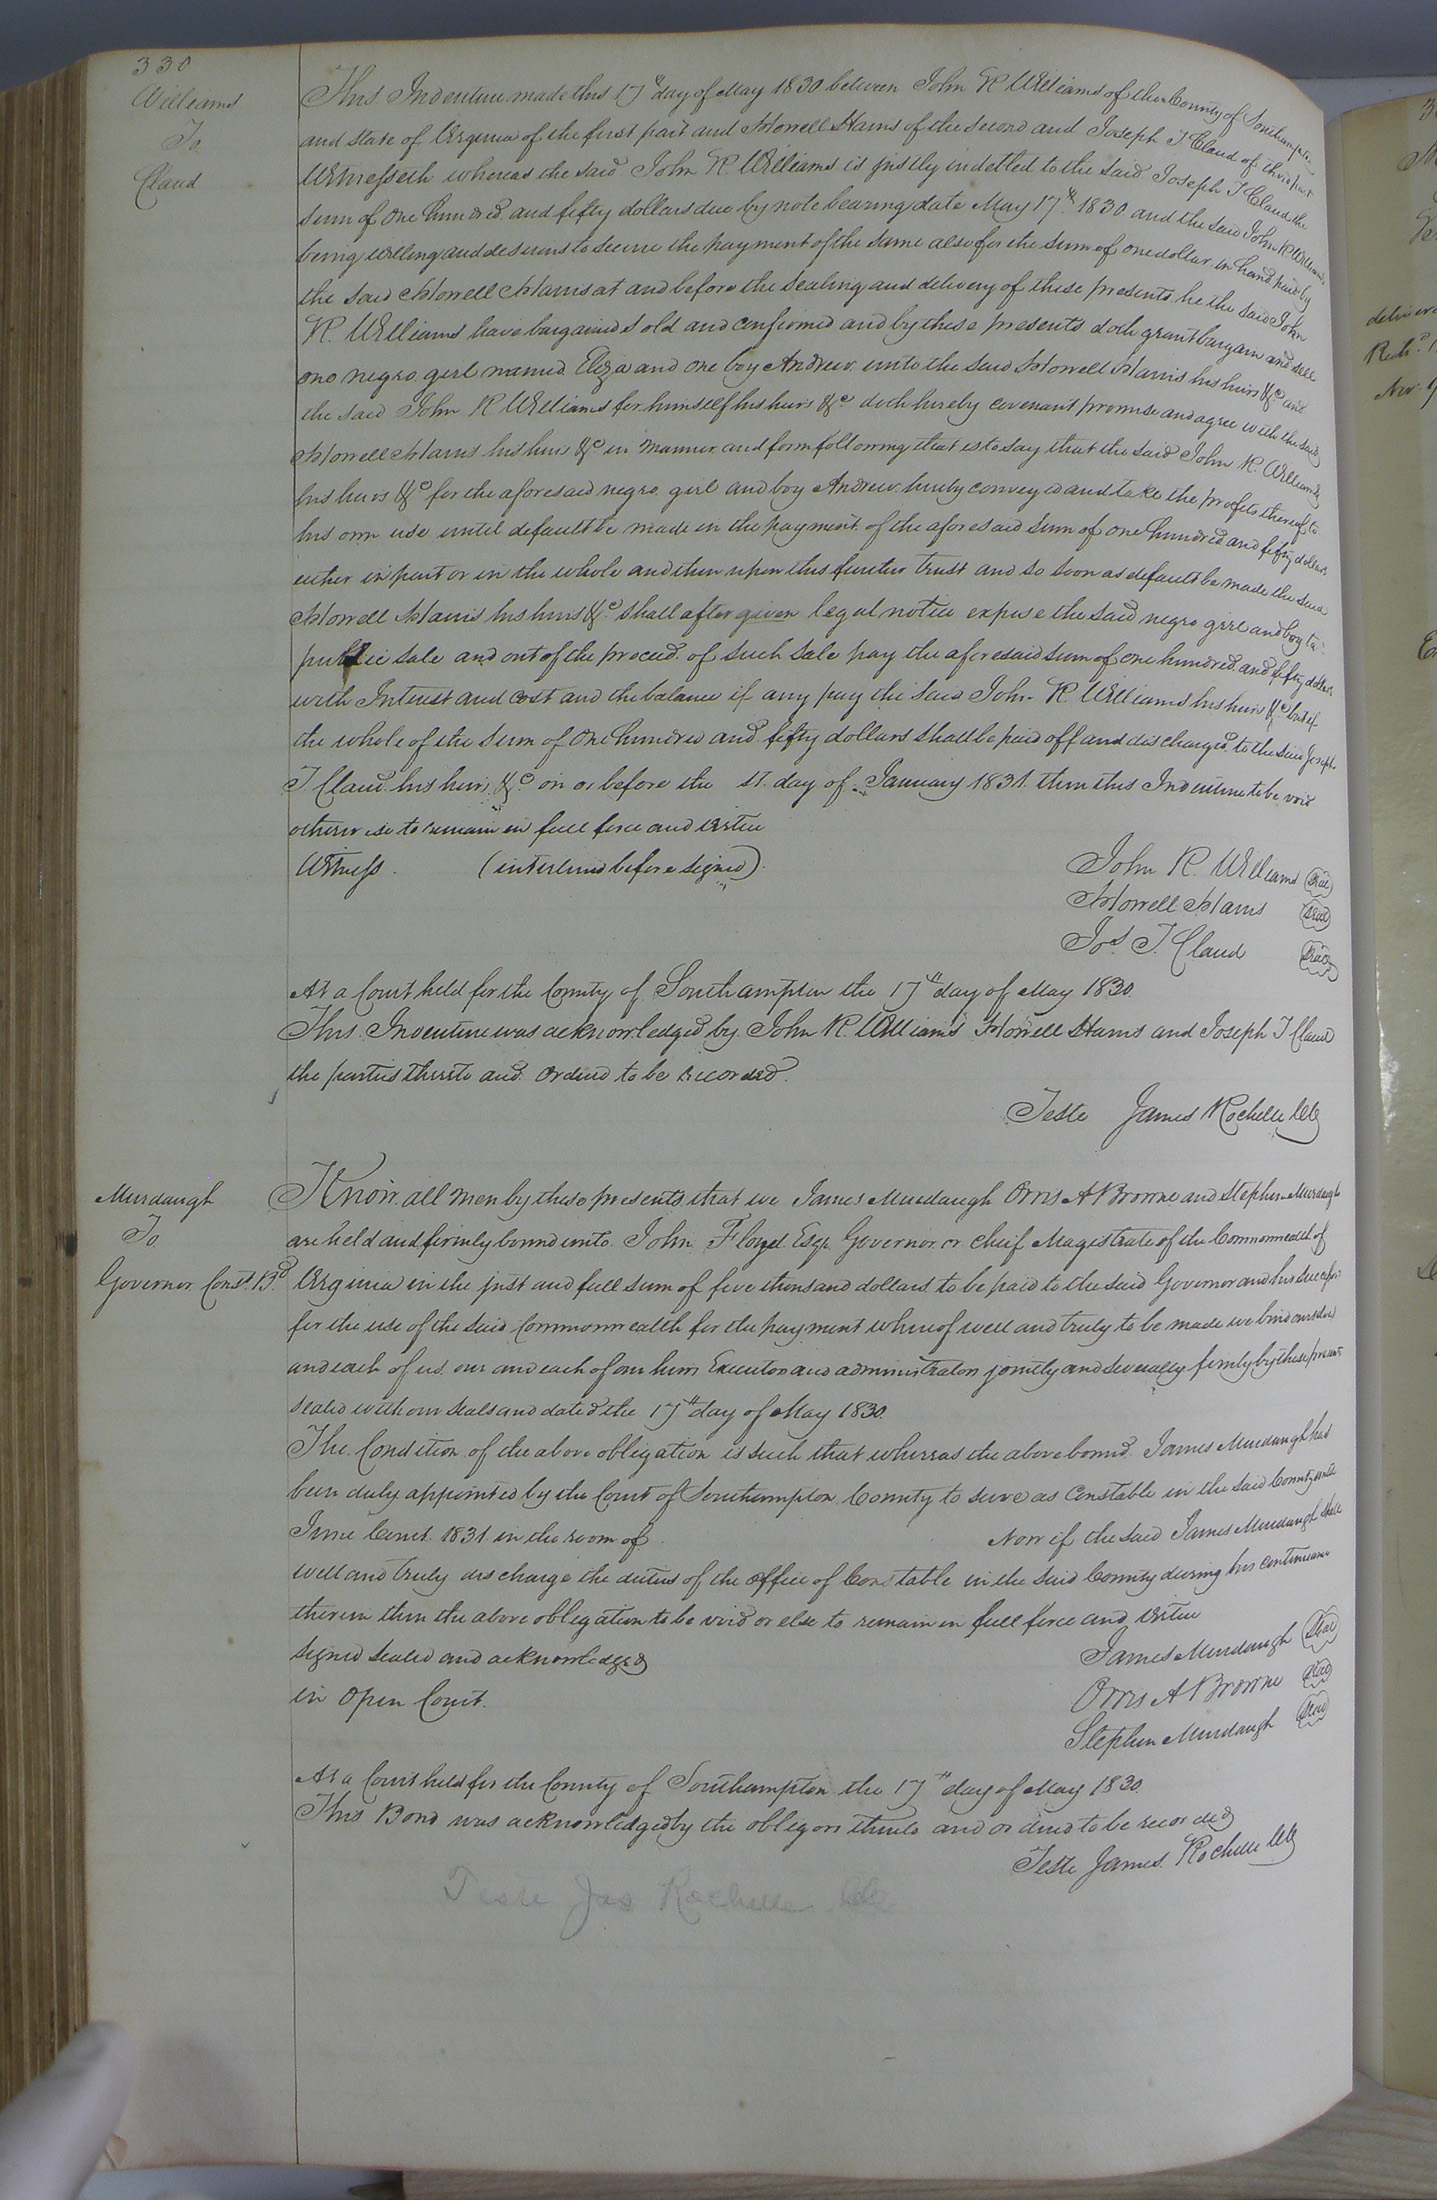 330
Williams
To
Claud
This Indenture made this 17th day of May 1830 between John R Williams of the County of Southampton
and State of Virginia of the first part and Howell Harris of the Second and Joseph T Claud of third part
Witnesseth whereas the said John R Williams is justly indetted to the said Joseph T Claud the
Sum of One hundred and fifty dollars due by note bearing date May 17th 1830 and the said John R Williams
being willing and desirous to secure the payment of the same also for the sum of one dollar in hand paid by
the said Howell Harris at and before the sealing and delivery of these presents he the said John
R. Williams have bargained sold and confirmed and by these presents doth grant bargain and sell
one negro girl named Eliza and one boy Andrew unto the said Howell Harris his heirs &c and
the said John R Williams for himself his heirs &c doth hereby covenant promise and agree with the said
Howell Harris his heirs &c in manner and form following that is to say that the said John R. Williams
his heirs &c for the aforesaid negro girl and boy Andrew hereby conveyed and take the profits thereof to
his own use until default be made in the payment of the aforesaid sum of one hundred and fifty dollars
either in part or in the whole and then upon this further trust and so soon as default be made the said
Howell Harris his heirs &c shall after given legal notice expose the said negro girl and boy to
public sale and out of the proceed of such sale pay the aforesaid sum of one hundred and fifty dollars
with Interest and cost and the balance if any pay the said John R. Williams his heirs &c but if
the whole of the sum of One hundred and fifty dollars shall be paid off and discharged to the said Joseph
T Claud his heirs &c on or before the 1st day of January 1831 then this Indenture to be void
otherwise to remain in full force and virtue
Witness. (interlined before signed)
John R. Williams Seal
Howell Harris Seal
Jos T. Claud Seal
At a Court held for the County of Southampton the 17th day of May 1830.
This Indenture was acknowledged by John R. Williams Howell Harris and Joseph T Claud
the parties thereto and ordered to be recorded.
Teste James Rochelle Clk
Murdaugh
To
Governor Const. Bd
Know all men by these presents that we James Murdaugh Orris A Browne and Stephen Murdaugh
are held and firmly bound unto John Floyd Esqr Governor or chief Magistrate of the Commonwealth of
Virginia in the just and full sum of five thousand dollars to be paid to the said Governor and his successors
for the use of the said Commonwealth for the payment whereof well and truly to be made we bind ourselves
and each of us our and each of our heirs Executors and administrators jointly and severally firmly by these presents
sealed with our seals and dated the 17th day of May 1830.
The Condition of the above obligation is such that whereas the above bound James Murdaugh has
been duly appointed by the Court of Southampton County to serve as Constable in the said County until
June Court 1831 in the room of Now if the said James Murdaugh shall
well and truly discharge the duties of the office of Constable in the said County during his continuance
therein then the above obligation to be void or else to remain in full force and virtue
Signed Sealed and acknowledged
in Open Court.
James Murdaugh Seal
Orris A Browne Seal
Stephen Murdaugh Seal
At a Court held for the County of Southampton the 17th day of May 1830.
This Bond was acknowledged by the obligors thereto and ordered to be recorded
Teste James Rochelle Clk
Teste Jas Rochelle Clk